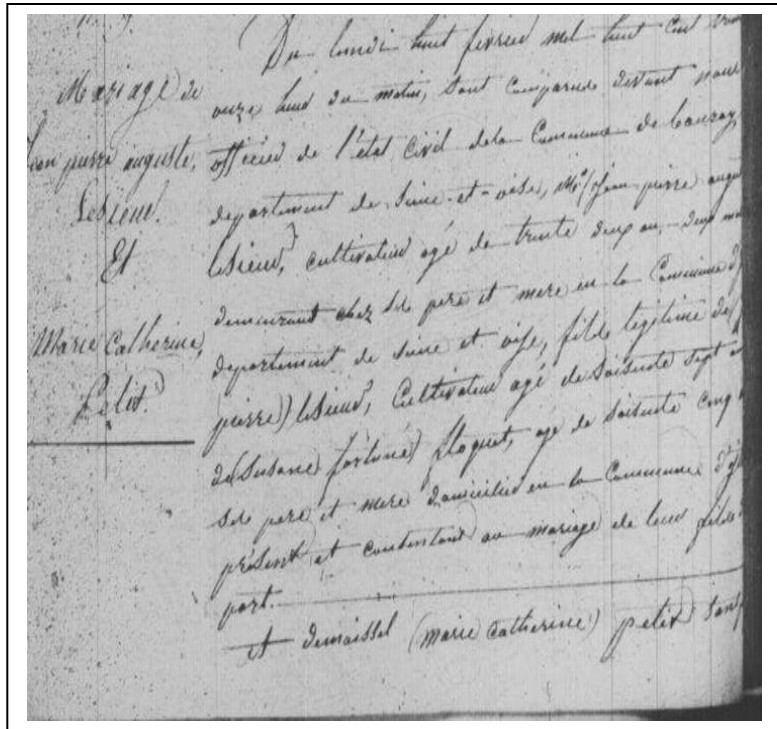 Mariage de
Jean pierre auguste,
Lesieur.
Et
Marie Catherine,
Petit.
Du lundi huit fevrier mil huit cent
onze heure du matin, sont comparus devant nous
officier de l'état civil de la Commune de
departement de Seine-et-oise, Mr (Jean pierre
lesieur) cultivateur agé de trente deux ans deux
demeurant chez ses pere et mere en la Commune
departement de Seine et oise, fils legitime de
pierre) lesieur, Cultivateur agé de soixante sept
de (Susane fortuné) floquet, agé de soixante cinq
ses pere et mere domiciliés en la Commune
présent et consentant au mariage de leur fils
part.
et demoissel (marie catherine) petit